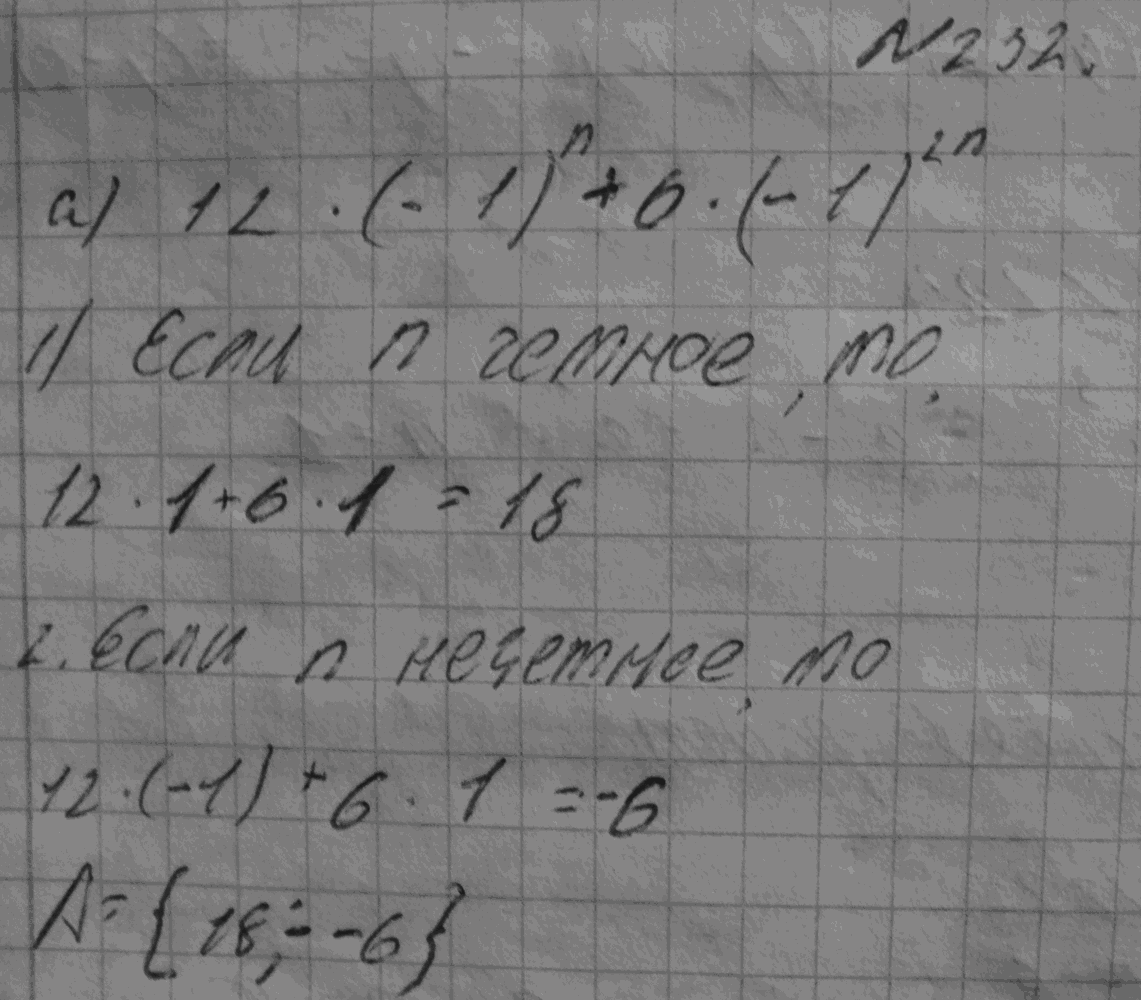 N 232.
а) 12 · (- 1)^n + 6 · (- 1)^2n
1) Если n четное, то
12 · 1 + 6 · 1 = 18
2. Если n нечетное, то
12 · (-1) + 6 · 1 = -6
A = {18; -6}